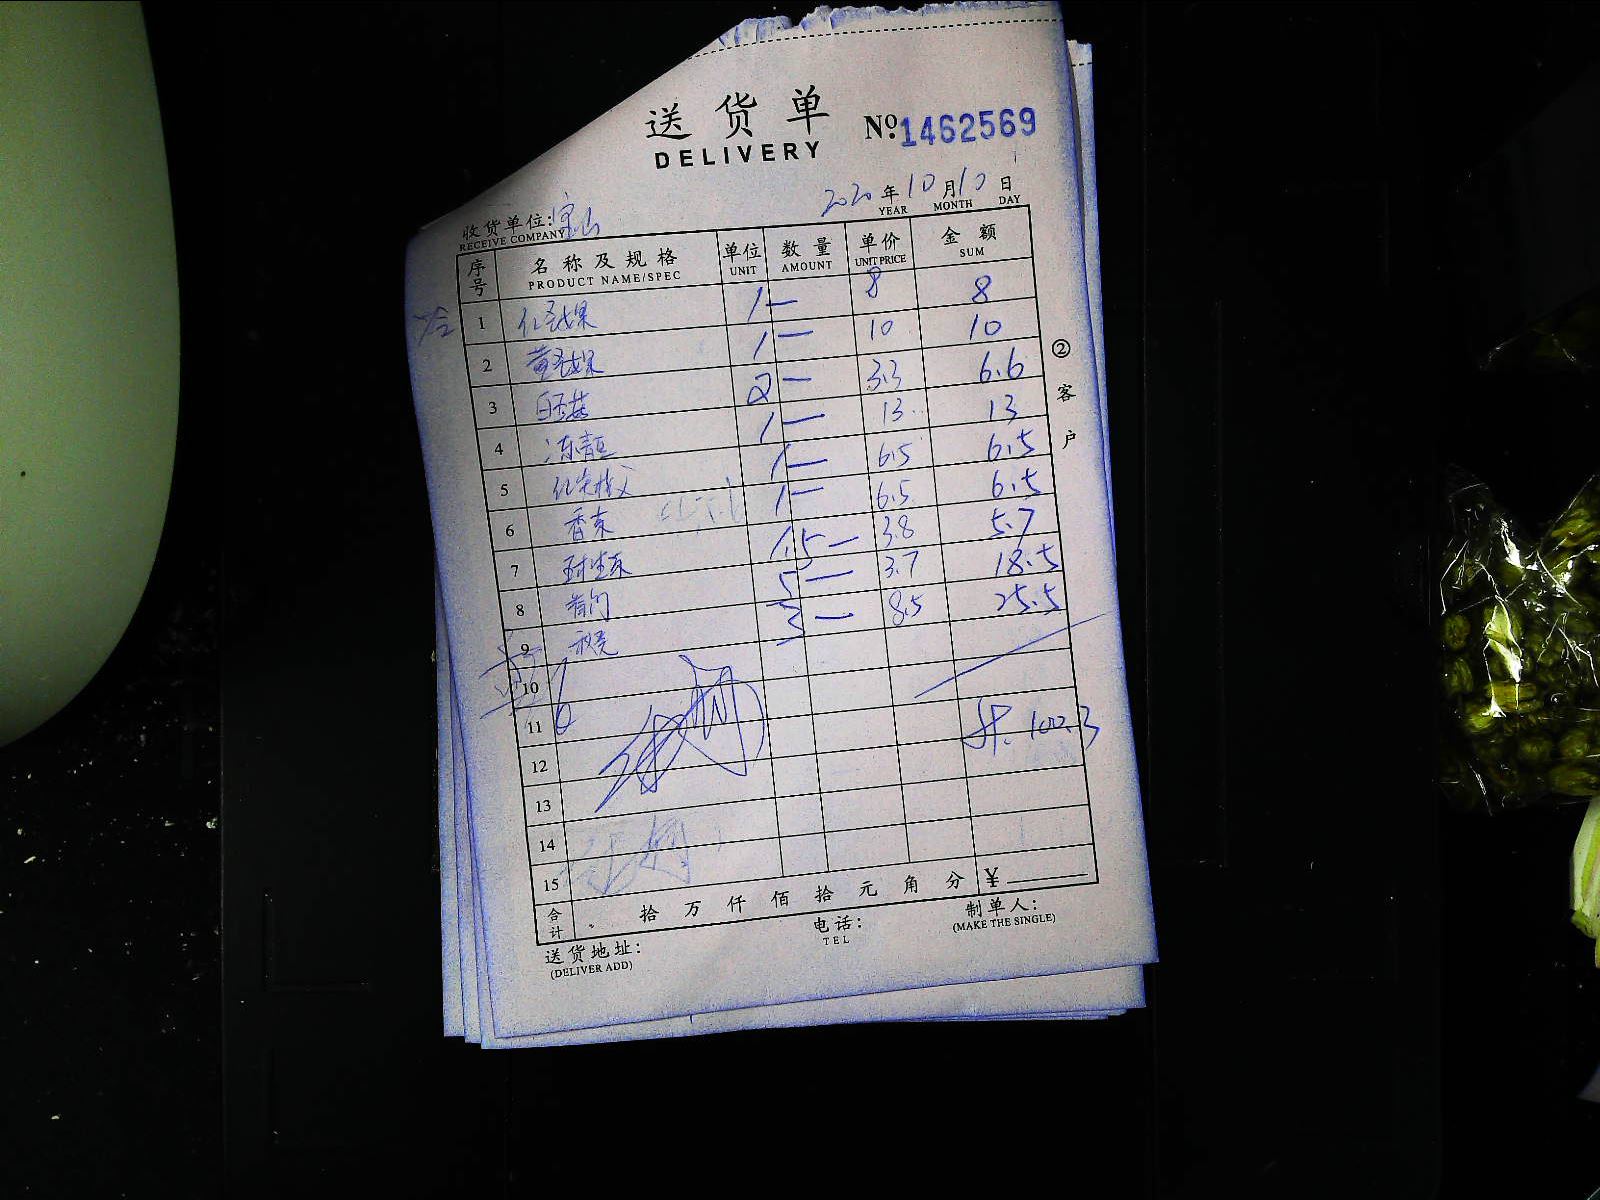 送货单
DELIVERY
No. 1462569
2020年10月10日
YEAR MONTH DAY
收货单位:宝山
RECEIVE COMPANY
序号 名称及规格 单位 数量 单价 金额
PRODUCT NAME/SPEC UNIT AMOUNT UNIT PRICE SUM
1 1— 8 8
2 1— 10 10
3 2— 3.3 6.6
4 冻青豆 1— 13 13
5 1— 6.5 6.5
6 香东 1— 6.5 6.5
7 1.5— 3.8 5.7
8 5— 3.7 18.5
9 3— 8.5 25.5
10
11
12 100.3
13
14
15
合计 拾 万 仟 佰 拾 元 角 分 ¥
送货地址: 电话: 制单人:
(DELIVER ADD) TEL (MAKE THE SINGLE)
②客户